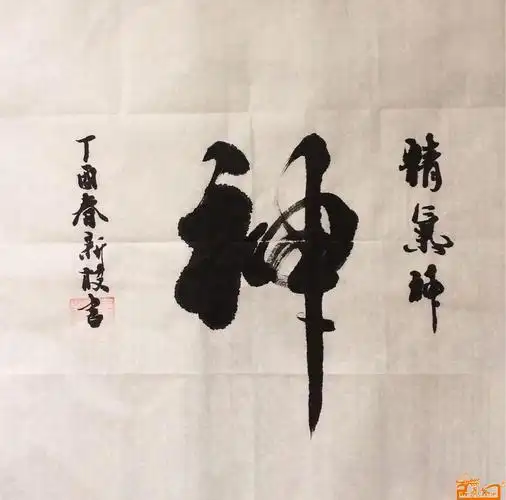 精氣神
神
丁酉春新枝書